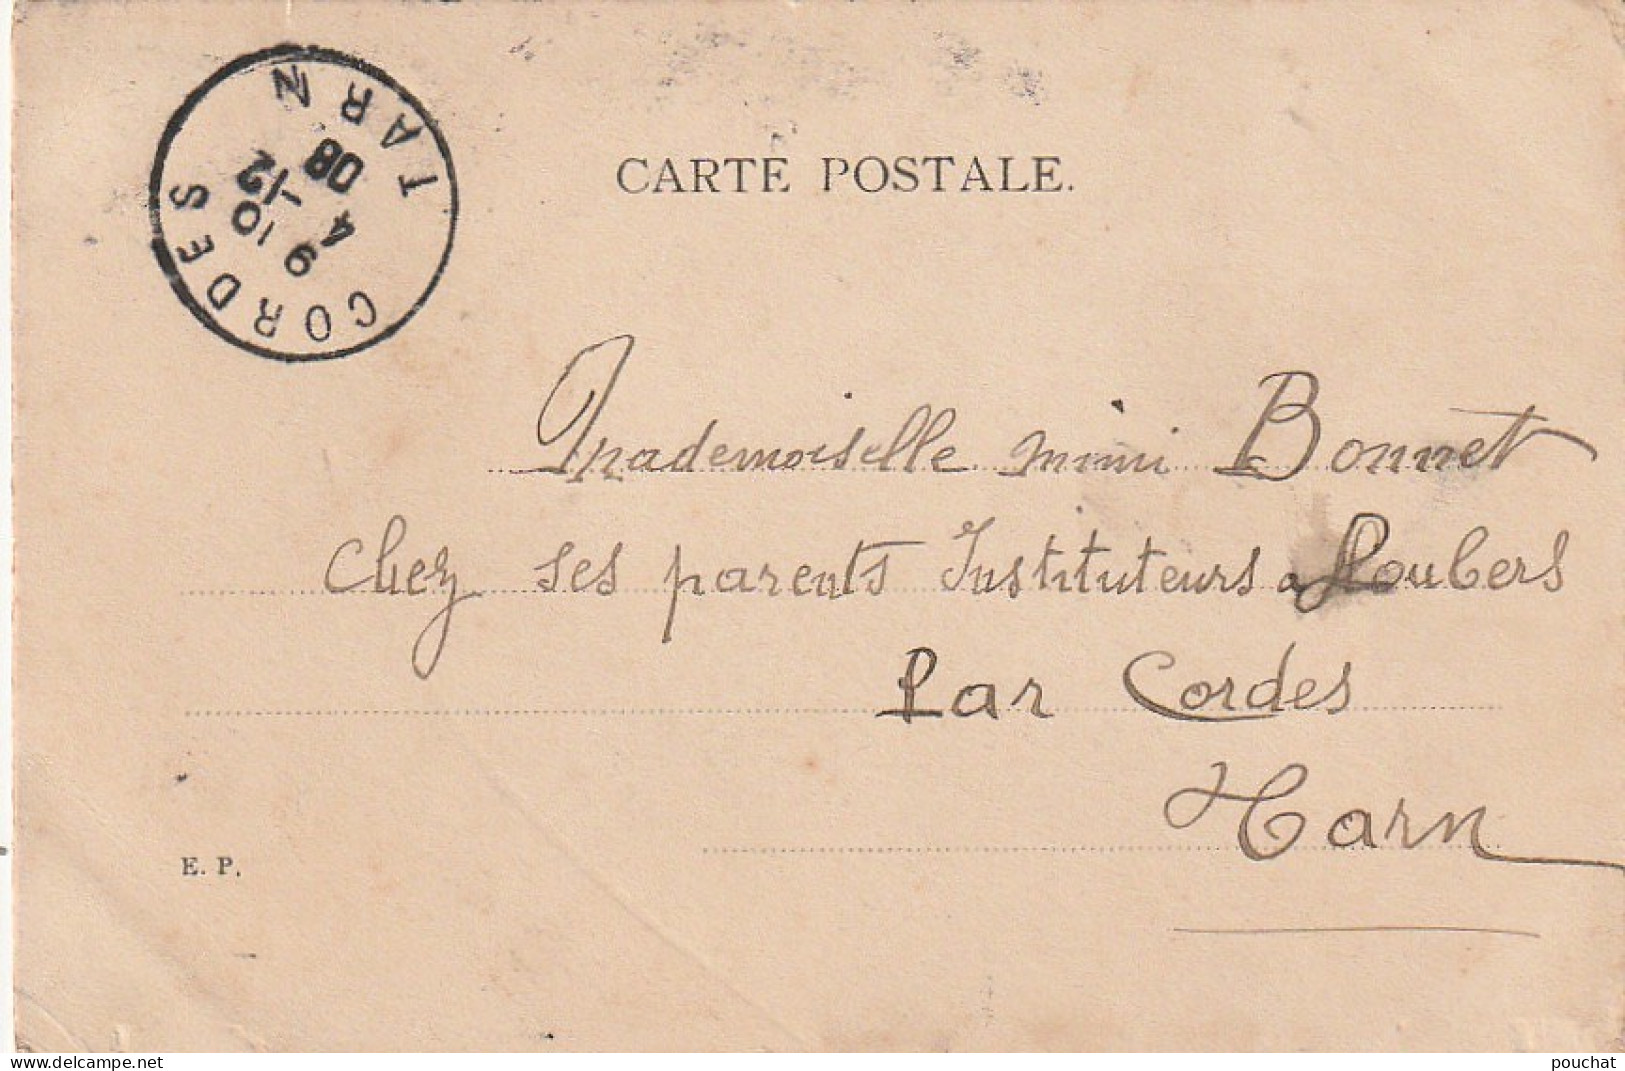 CORDES
TARN
9 10
4 -12
08
CARTE POSTALE.
Mademoiselle Mimi Bonnet
Chez ses parents Instituteurs a Loubers
Par Cordes
Tarn
E. P.
www.delcampe.net
pouchat